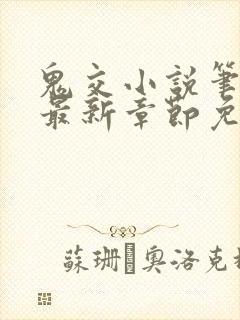 鬼交小説筆
最新章節免
蘇珊·奧洛克